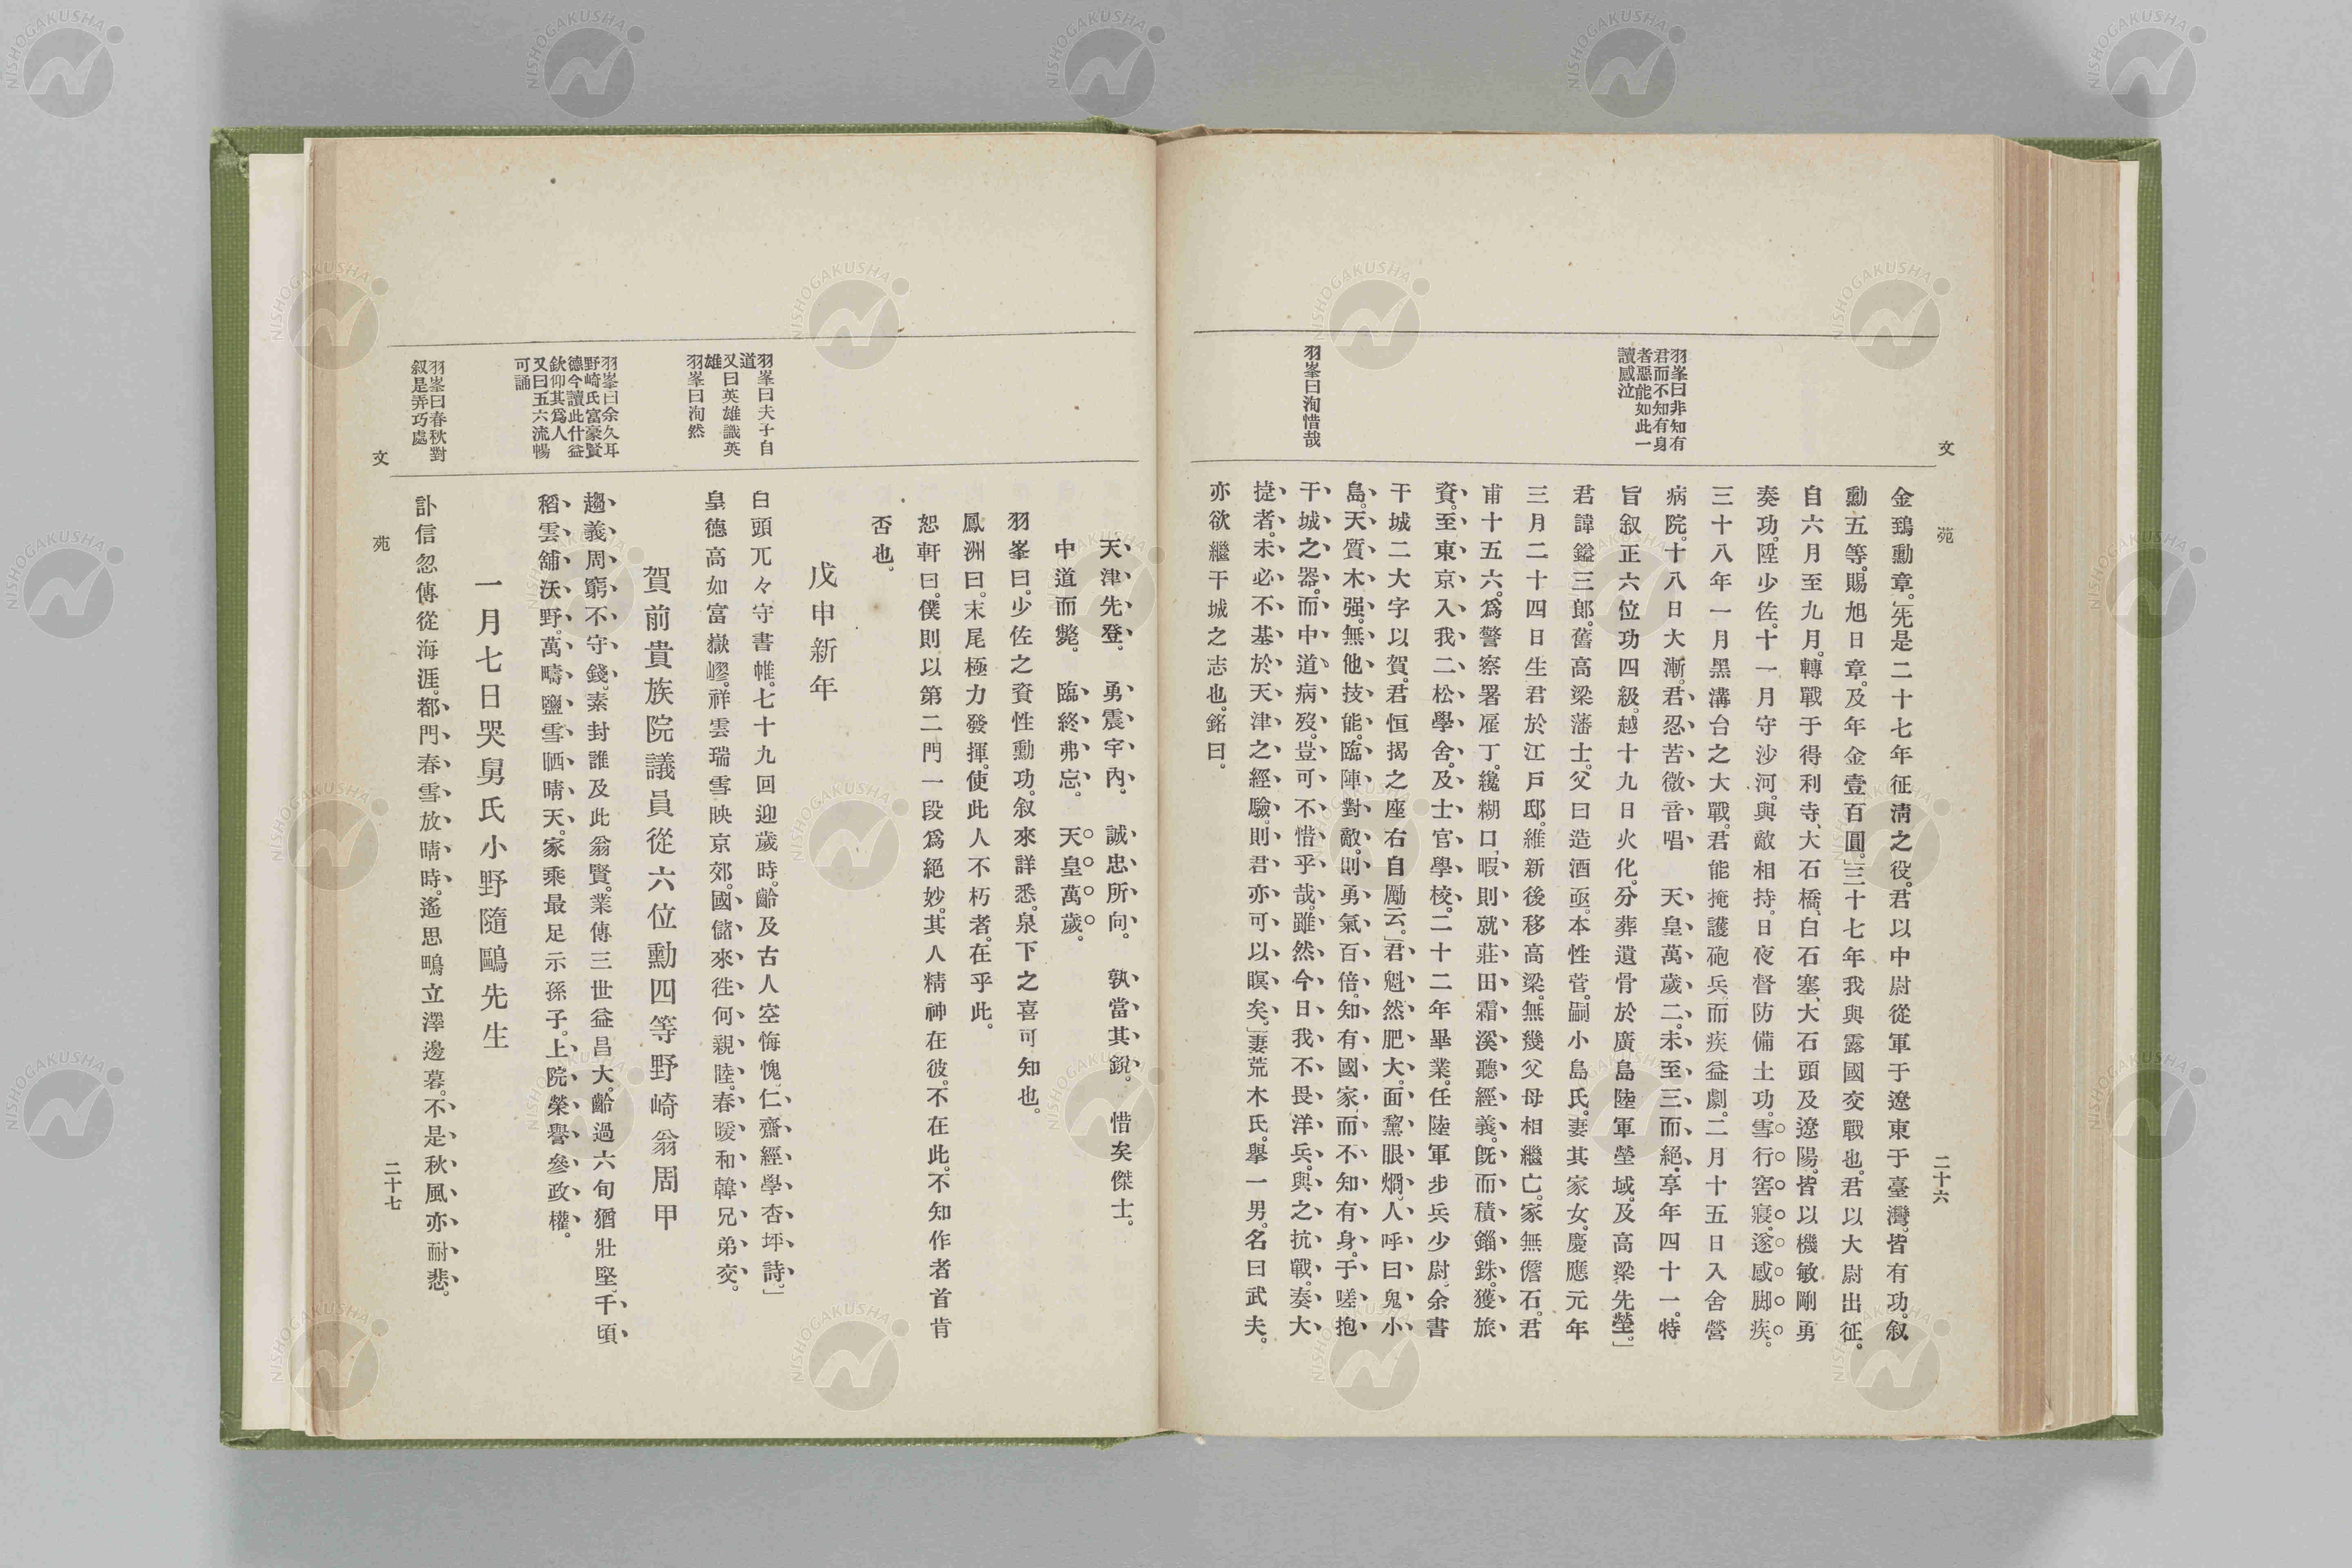 文 苑
二十六
羽峯曰非知有
君而不知有身
者惡能如此一
讀感泣
羽峯曰洵惜哉
金鵄勳章。先是二十七年征淸之役。君以中尉從軍于遼東于臺灣。皆有功。叙
勳五等。賜旭日章。及年金壹百圓。」三十七年我與露國交戰也。君以大尉出征。
自六月至九月。轉戰于得利寺、大石橋、白石塞、大石頭及遼陽。皆以機敏剛勇
奏功。陞少佐。十一月守沙河。與敵相持。日夜督防備土功。雪行窖寢。遂感脚疾。
三十八年一月黑溝台之大戰。君能掩護砲兵。而疾益劇。二月十五日入舍營
病院。十八日大漸。君忍苦微音唱 天皇萬歲二。未至三而絕。享年四十一。特
旨叙正六位功四級。越十九日火化。分葬遺骨於廣島陸軍塋域。及高梁先塋。」
君諱鎰三郎。舊高梁藩士。父曰造酒亟。本性菅。嗣小島氏。妻其家女。慶應元年
三月二十四日生君於江戸邸。維新後移高梁。無幾父母相繼亡。家無儋石。君
甫十五六。爲警察署雇丁。纔糊口。暇則就莊田霜溪聽經義。旣而積錙銖。獲旅
資。至東京入我二松學舍。及士官學校。二十二年畢業。任陸軍步兵少尉。余書
干城二大字以賀。君恒揭之座右自勵云。」君魁然肥大。面黧眼烱。人呼曰鬼小
島。天質木强。無他技能。臨陣對敵。則勇氣百倍。知有國家。而不知有身。于嗟抱
干城之器。而中道病歿。豈可不惜乎哉。雖然今日我不畏洋兵。與之抗戰。奏大
捷者。未必不基於天津之經驗。則君亦可以瞑矣。」妻荒木氏。擧一男。名曰武夫。
亦欲繼干城之志也。銘曰。
天津先登。 勇震宇內。 誠忠所向。 孰當其銳。 惜矣傑士。
中道而斃。 臨終弗忘。 天皇萬歲。
羽峯曰。少佐之資性勳功。叙來詳悉。泉下之喜可知也。
鳳洲曰。末尾極力發揮。使此人不朽者。在乎此。
恕軒曰。僕則以第二門一段爲絕妙。其人精神在彼。不在此。不知作者首肯
否也。
戊申新年
羽峯曰夫子自
道
又曰英雄識英
雄
羽峯曰洵然
白頭兀々守書帷。七十九回迎歲時。齡及古人空悔愧。仁齋經學杏坪詩。」
皇德高如富嶽嶛。祥雲瑞雪映京郊。國儲來徃何親睦。春暖和韓兄弟交。
賀前貴族院議員從六位勳四等野崎翁周甲
羽峯曰余久耳
野崎氏富豪賢
德今讀此什益
欽仰其爲人
又曰五六流暢
可誦
趨義周窮不守錢。素封誰及此翁賢。業傳三世益昌大。齡過六旬猶壯堅。千頃
稻雲舖沃野。萬疇鹽雪晒晴天。家乘最足示孫子。上院榮譽參政權。
一月七日哭舅氏小野隨鷗先生
羽峯曰春秋對
叙是弄巧處
訃信忽傳從海涯。都門春雪放晴時。遙思鴫立澤邊暮。不是秋風亦耐悲。
文 苑
二十七
NISHOGAKUSHA